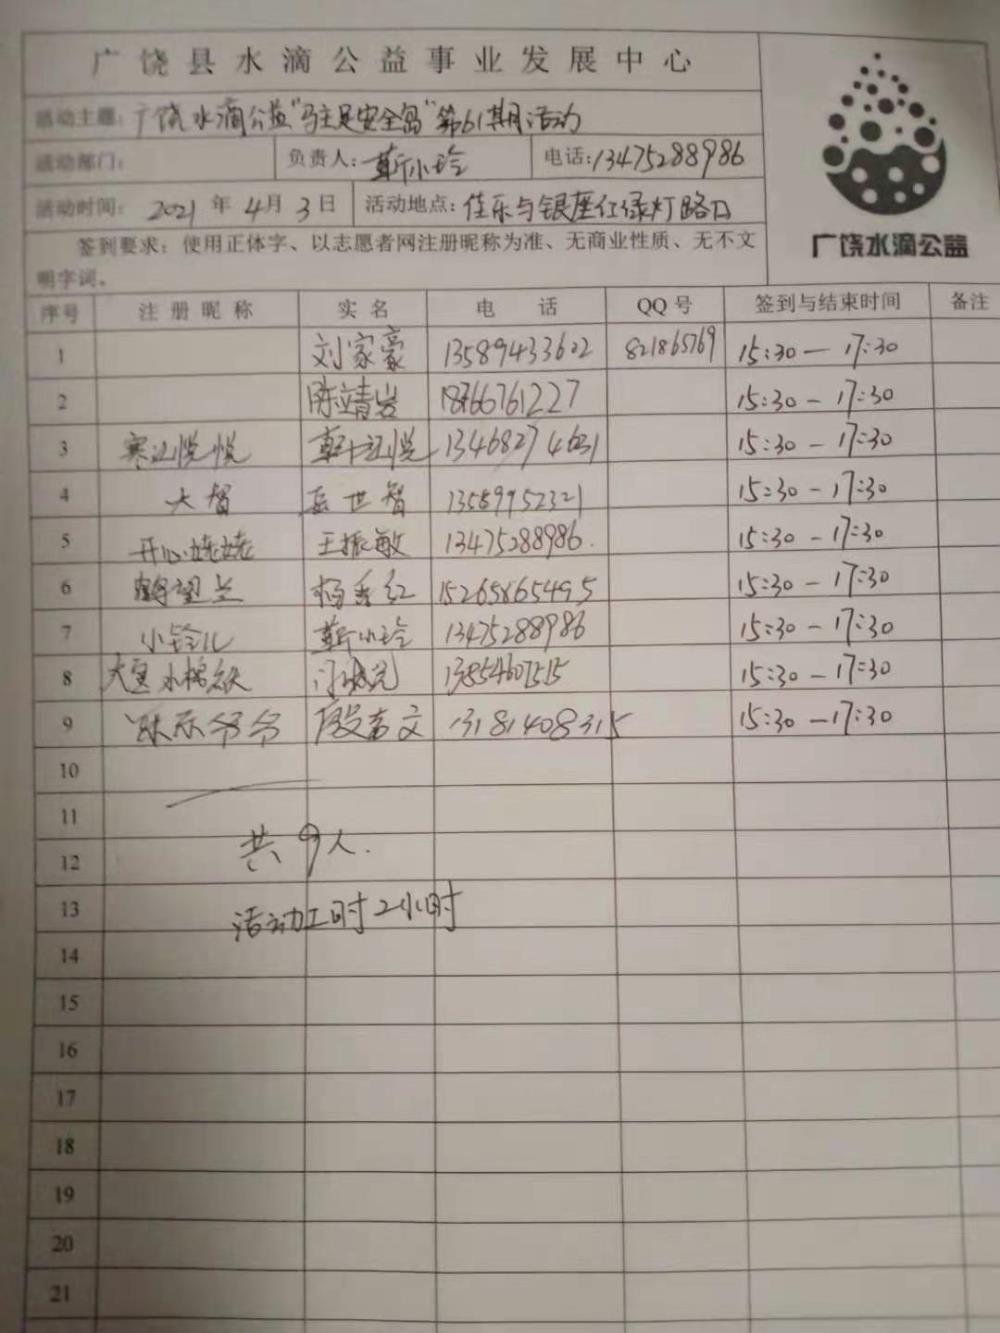 广饶县水滴公益事业发展中心
活动主题：广饶水滴公益"驻足安全岛"第61期活动
活动部门： 负责人：靳小玲 电话：13475288986
活动时间： 2021 年 4 月 3 日 活动地点：佳乐与银座红绿灯路口
签到要求：使用正体字、以志愿者网注册昵称为准、无商业性质、无不文
明字词。
广饶水滴公益
序号 注册昵称 实名 电话 QQ号 签到与结束时间 备注
1 刘家豪 13589433602 821865769 15:30—17:30
2 陈靖岩 18766761227 15:30-17:30
3 寒江悦悦 13468274631 15:30-17:30
4 大智 岳世智 13589952321 15:30-17:30
5 开心姥姥 王振敏 13475288986. 15:30-17:30
6 鹤望兰 杨秀红 15265865495 15:30-17:30
7 小铃儿 靳小玲 13475288986 15:30-17:30
8 13854607515 15:30-17:30
9 乐乐爷爷 殷嘉文 13181408315 15:30-17:30
10
11
12 共9人.
13 活动工时2小时
14
15
16
17
18
19
20
21